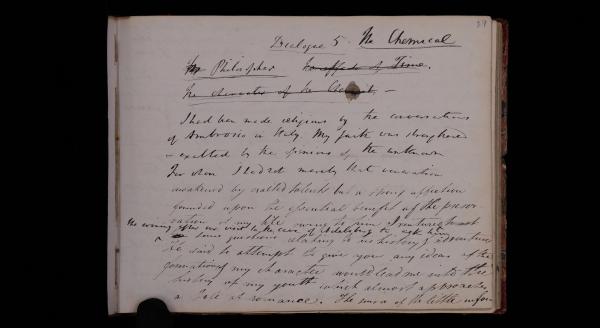 29
Dialogue 5. The Chemical
The Philosopher The effects of Time.
The character of the Chemist, —
I had been made religious by the conversations
of Ambrosio in Italy. My faith was strengthened
& exalted by the opinions of the unknown
For whom I had not merely that veneration
awakened by exalted talents but a strong affection
founded upon the essential benefit of the preser-
vation of my life owing to him I ventured
the evening after our visit to the cave of Adelsberg to ask him
some questions relating to his history & adventures
He said to attempt to give you any ideas of the
formation of my character would lead me into the
history of my youth which almost approaches
a tale of romance. The son of the little infor